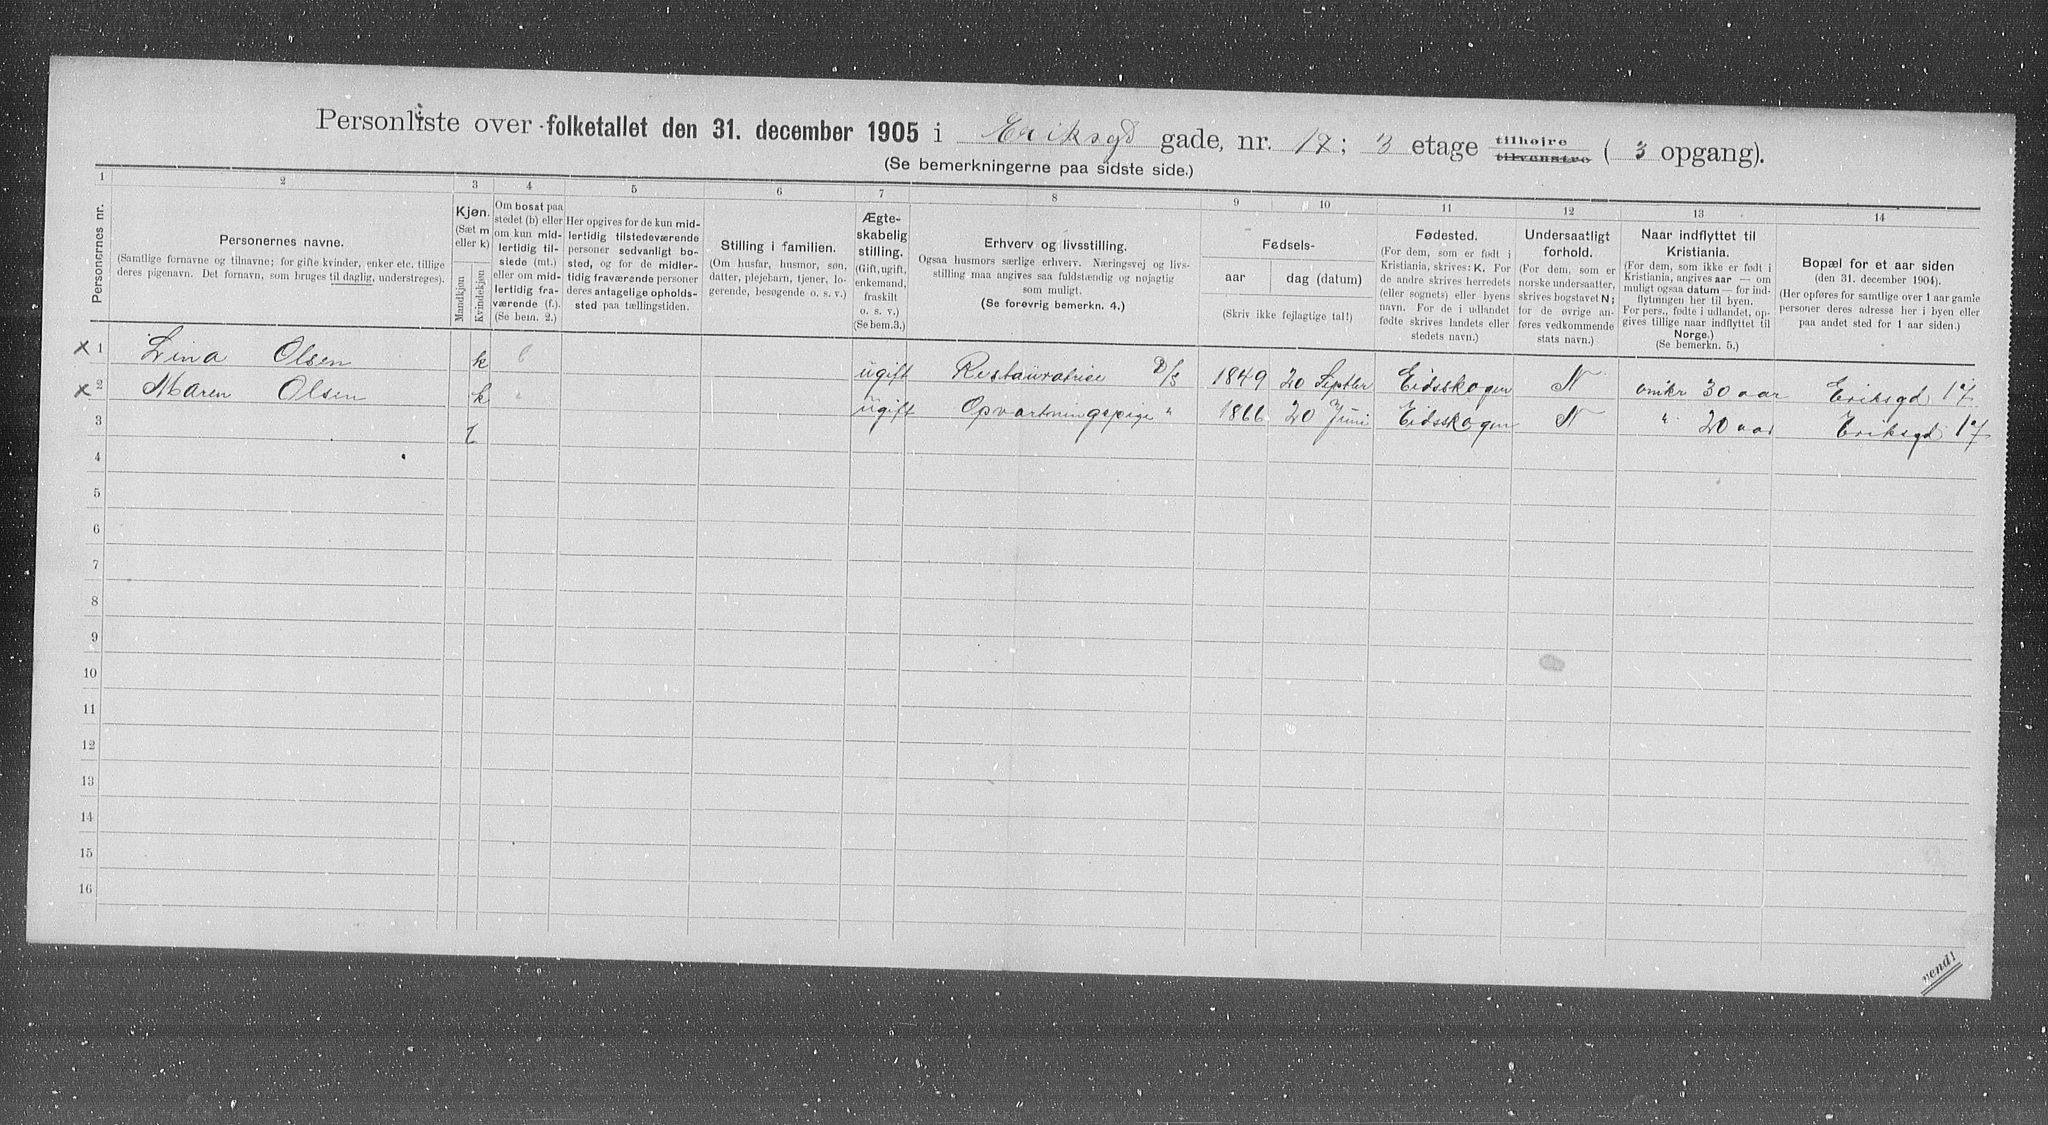 Personliste over folketallet den 31. december 1905 i Eriksgd gade, nr. 17; 3 etage tilhøjre tilvenstre ( 3 opgang).
(Se bemerkningerne paa sidste side.)
1 2 3 4 5 6 7 8 9 10 11 12 13 14
Personernes nr.
Personernes navne.
(Samtlige fornavne og tilnavne; for gifte kvinder, enker etc. tillige
deres pigenavn. Det fornavn, som bruges til daglig, understreges).
Kjøn.
(Sæt m
eller k)
Mandkjøn
Kvindekjøn
Om bosat paa
stedet (b) eller
om kun mid-
lertidig til-
stede (mt.)
eller om mid-
lertidig fra-
værende (f.).
(Se bem. 2.)
Her opgives for de kun mid-
lertidig tilstedeværende
personer sedvanligt bo-
sted, og for de midler-
tidig fraværende personer
deres antagelige opholds-
sted paa tællingstiden.
Stilling i familien.
(Om husfar, husmor, søn,
datter, plejebarn, tjener, lo-
gerende, besøgende o. s. v.)
Ægte-
skabelig
stilling.
(Gift, ugift,
enkemand,
fraskilt
o. s. v.)
(Se bem.3.)
Erhverv og livsstilling.
Ogsaa husmors særlige erhverv. Næringsvej og livs-
stilling maa angives saa fuldstændig og nøjagtig
som muligt.
(Se forøvrig bemerkn. 4.)
Fødsels-
aar
dag (datum)
(Skriv ikke fejlagtige tal!)
Fødested.
(For dem, som er født i
Kristiania, skrives: K. For
de andre skrives herredets
(eller sognets) eller byens
navn. For de i udlandet
fødte skrives landets eller
stedets navn.)
Undersaatligt
forhold.
(For dem, som er
norske undersaatter,
skrives bogstavet N;
for de øvrige an-
føres vedkommende
stats navn.)
Naar indflyttet til
Kristiania.
(For dem, som ikke er født i
Kristiania, angives aar — om
muligt ogsaa datum — for ind-
flytningen her til byen.
For pers., fødte i udlandet, op-
gives tillige naar indflyttet til
Norge.)
(Se bemerkn. 5.)
Bopæl for et aar siden
(den 31. december 1904).
(Her opføres for samtlige over 1 aar gamle
personer deres adresse her i byen eller
paa andet sted for 1 aar siden.)
x 1 Lina Olsen k b ugift Restauratrice 1849 20 Septbr Eidsskogen N omkr 30 aar Eriksgd 17
x 2 Maren Olsen k " ugift Opvartningspige " 1866 20 Juni Eidsskogen N " 20 aar Eriksgd 17
3
4
5
6
7
8
9
10
11
12
13
14
15
16
vend!